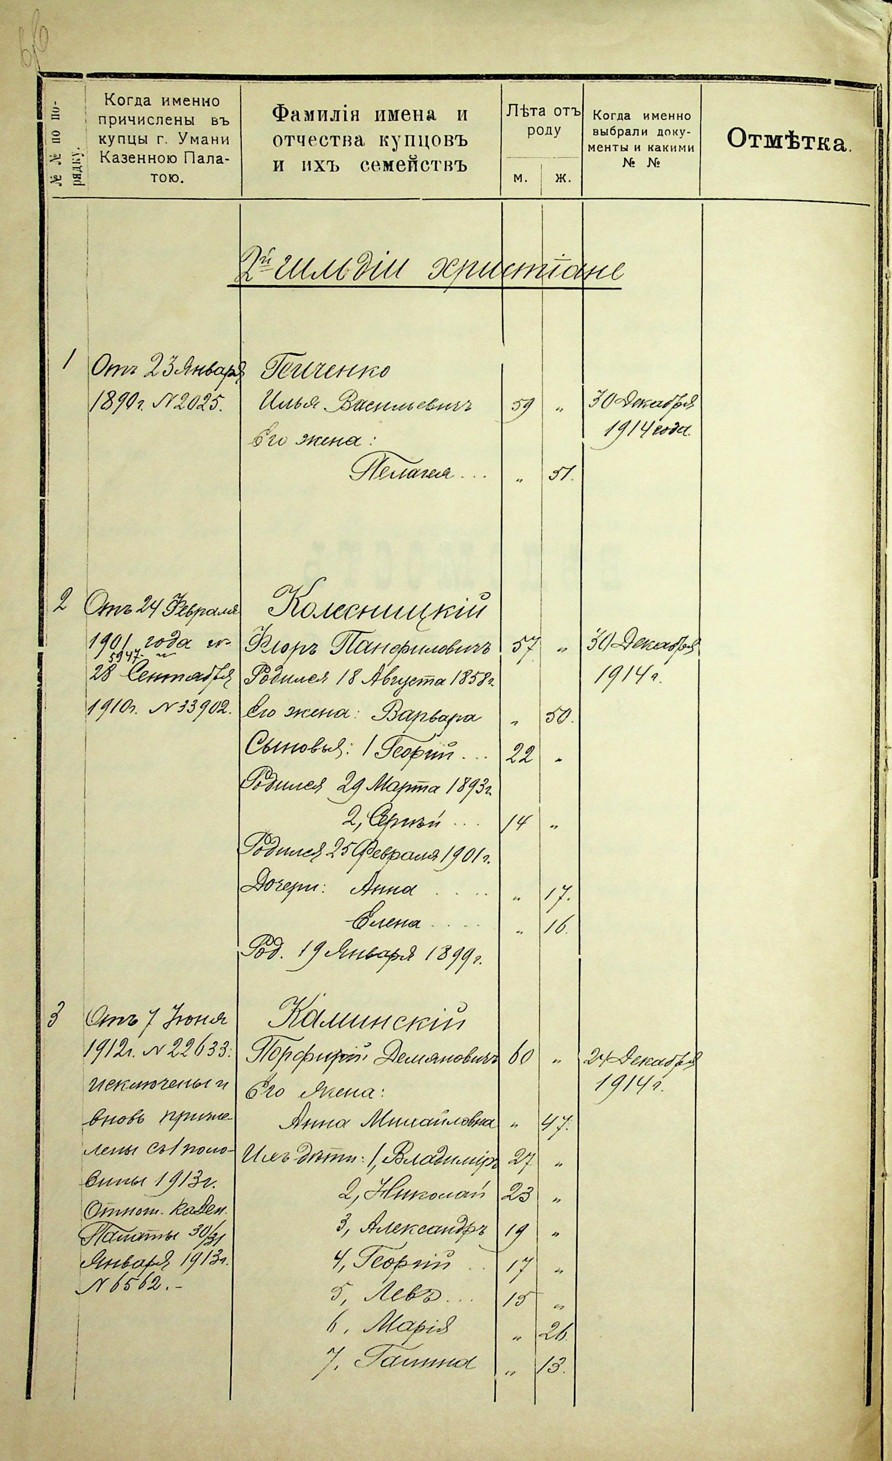 № № по по-
рядку.
Когда именно
причислены въ
купцы г. Умани
Казенною Пала-
тою.
Фамилія имена и
отчества купцовъ
и ихъ семействъ
Лѣта отъ
роду
м.
ж.
Когда именно
выбрали доку-
менты и какими
№ №
Отмѣтка.
2й гильдіи христіане
1
Отъ 23 Января
1890 г. № 2025.
Гейченко
Илья Васильевичъ 59 „
Его жена:
Пелагея ... „ 51.
30 Декабря
1914 года.
2
Отъ 24 Февраля
1901 года №
5947. и
28 Сентября
1910 г. № 33902.
Колесницкій
Флоръ Панфиловичъ 57 „
Родился 18 Августа 1858 г.
Его жена: Варвара „ 50.
Сыновья: 1 Георгій ... 22 „
Родился 29 Марта 1893 г.
2, Сергѣй ... 14 „
Родился 25 Февраля 1901 г.
Дочери: Анна .... „ 17.
Елена .... „ 16.
Род. 19 Января 1899 г.
30 Декабря
1914 г.
3
Отъ 7 Іюня
1912 г. № 22633.
исключены и
вновь причис-
лены съ 1 поло-
вины 1913 г.
Отнош. Казен.
Палаты 30/31
Января 1913 г.
№ 6562. —
Каминскій
Порфирій Демяновичъ 60 „
Его жена:
Анна Михайловна „ 47.
Ихъ дѣти: 1, Владиміръ 27 „
2, Николай 23 „
3, Александръ 19 „
4, Георгій .. 17 „
5, Левъ ... 15 „
6, Марія „ 26
7, Галина „ 13.
24 Декабря
1914 г.